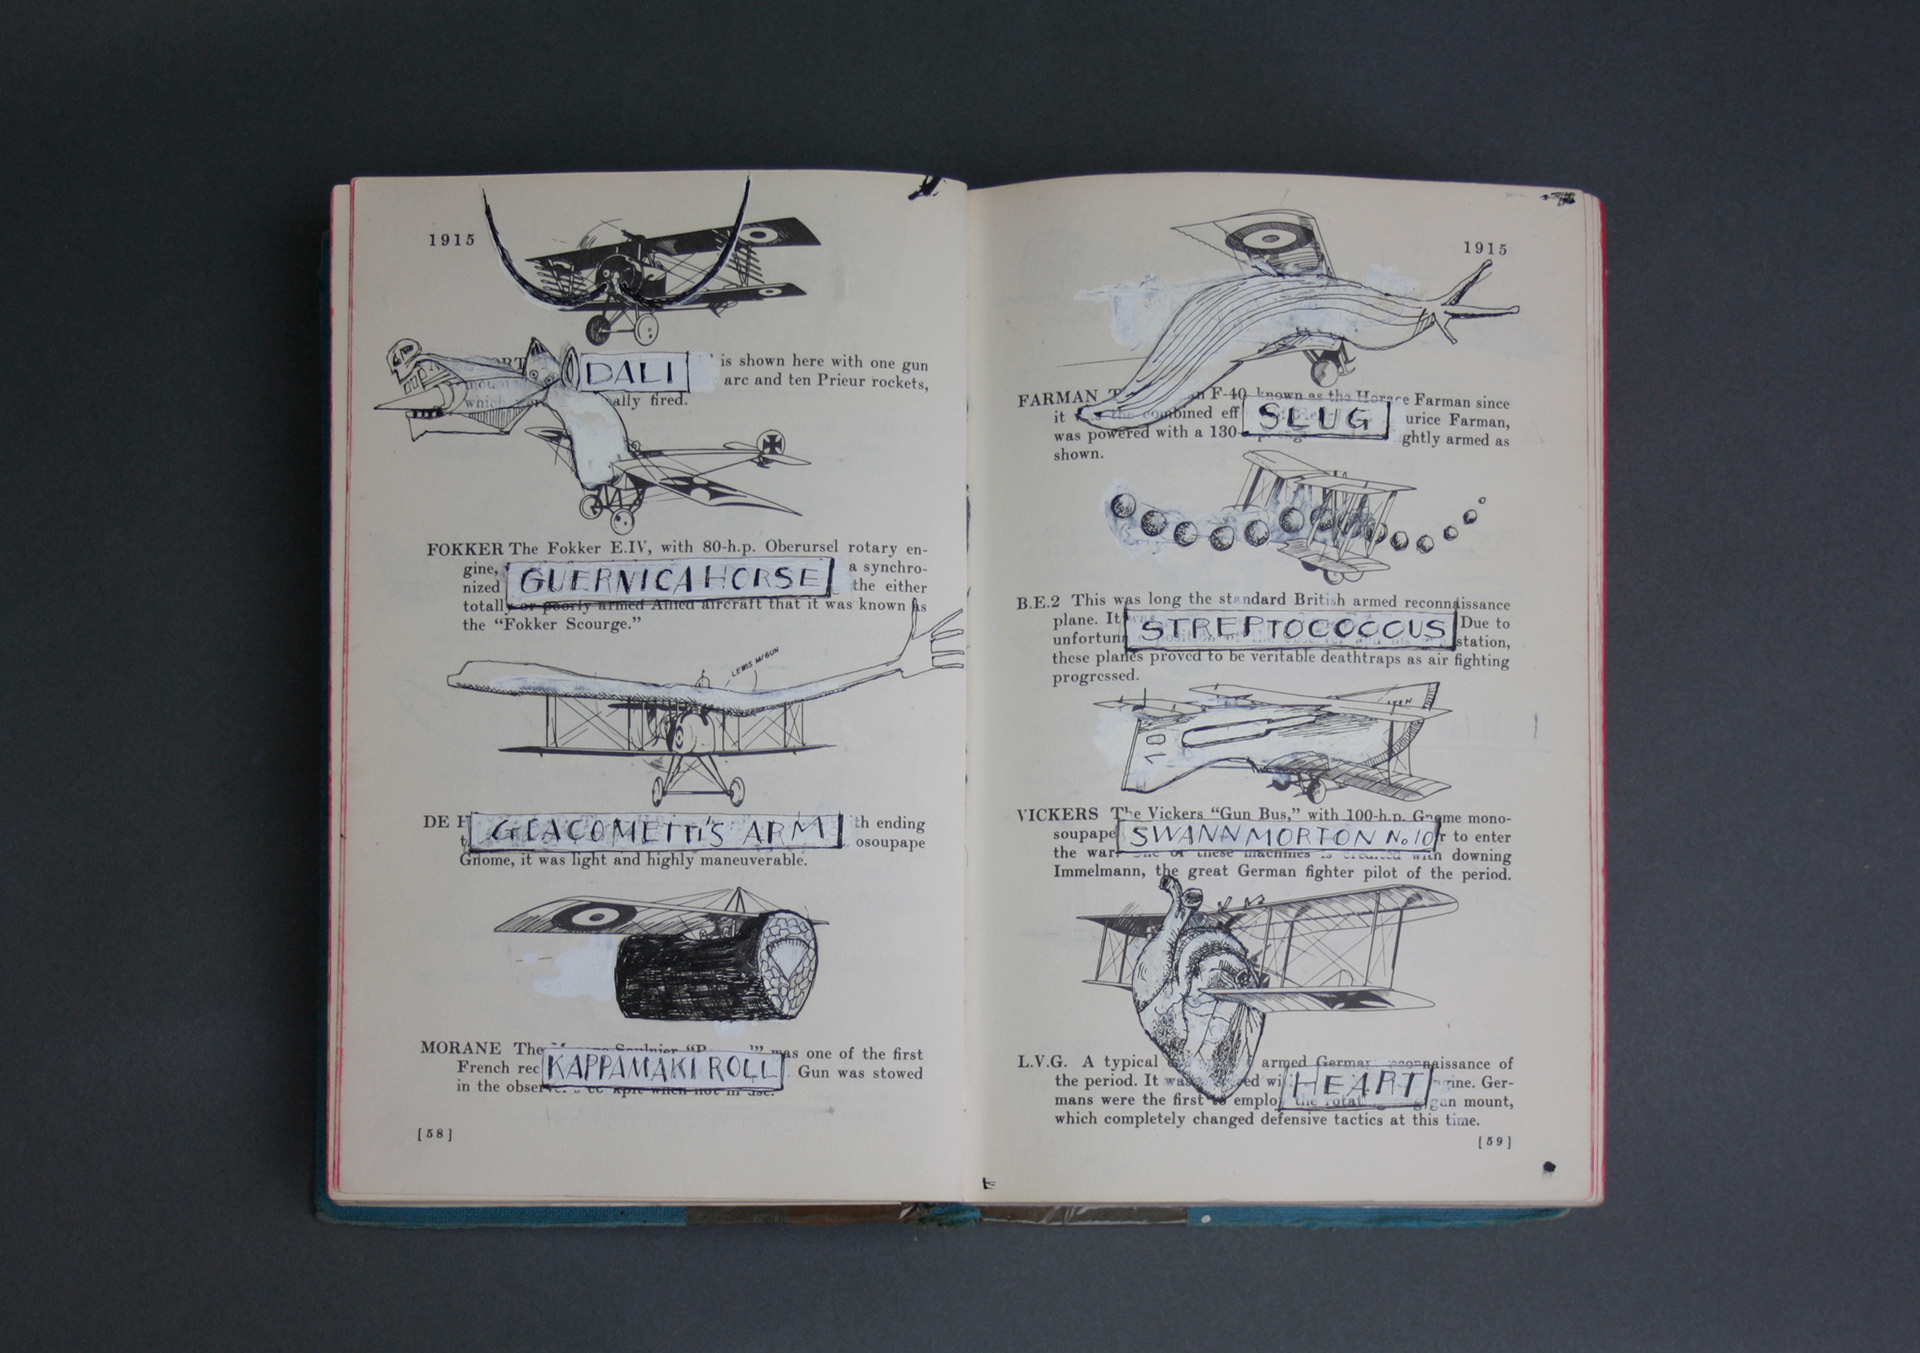 1915
DALI
is shown here with one gun
arc and ten Prieur rockets,
which ally fired.
FOKKER The Fokker E.IV, with 80-h.p. Oberursel rotary en-
gine, a synchro-
GUERNICA HORSE
nized the either
totally or poorly armed Allied aircraft that it was known as
the “Fokker Scourge.”
LEWIS M/GUN
DE H th ending
GIACOMETTI'S ARM
osoupape
Gnome, it was light and highly maneuverable.
MORANE The was one of the first
French rec Gun was stowed
KAPPAMAKI ROLL
in the observer's cockpit when not in use.
[58]
1915
FARMAN F-40 known as the Horace Farman since
it the combined eff urice Farman,
SLUG
was powered with a 130- ghtly armed as
shown.
B.E.2 This was long the standard British armed reconnaissance
plane. It Due to
STREPTOCOCCUS
unfortun station,
these planes proved to be veritable deathtraps as air fighting
progressed.
10
VICKERS The Vickers “Gun Bus,” with 100-h.p. Gnome mono-
soupape r to enter
SWANN MORTON No 10
the war. One of these machines is credited with downing
Immelmann, the great German fighter pilot of the period.
L.V.G. A typical armed German reconnaissance of
the period. It was ed wi gine. Ger-
HEART
mans were the first to employ the rotating gun mount,
which completely changed defensive tactics at this time.
[59]